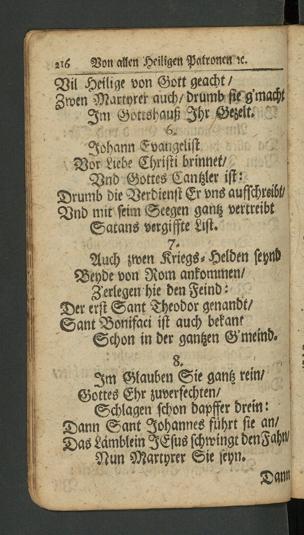 216 Von allen Heiligen Patronen ꝛc.
Vil Heilige von Gott geacht/
Zwen Martyrer auch/ drumb sie g'macht
Im Gottshauß Ihr Gezelt.
6.
Johann Evangelist
Vor Liebe Christi brinnet/
Vnd Gottes Cantzler ist:
Drumb die Verdienst Er vns auffschreibt/
Vnd mit seim Seegen gantz vertreibt
Satans vergiffte List.
7.
Auch zwen Kriegs-Helden seynd
Beyde von Rom ankommen/
Zerlegen hie den Feind:
Der erst Sant Theodor genandt/
Sant Bonifaci ist auch bekant
Schon in der gantzen G'meind.
8.
Im Glauben Sie gantz rein/
Gottes Ehr zuverfechten/
Schlagen schon dapffer drein:
Dann Sant Johannes führt sie an/
Das Lämblein JEsus schwingt den Fahn/
Nun Martyrer Sie seyn.
Dann